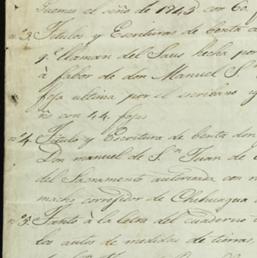 Juemes el año de 1843 con 60
nº3 Titulos y Escrituras de benta de
q. llaman del Saus hecha por
á fabor de don Manuel S.n
foja ultima por el escribano y
ñs con 44 fojas
nº4 Titulo y Escritura de benta don
Don manuel de S.n Juan de
del Sacramento autorizada con
corregidor de Chihuagua
nº5 Tanto á la letra del cuaderno
los autos de medidas de tierras,